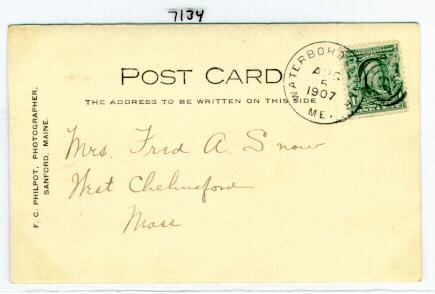 7134
POST CARD
THE ADDRESS TO BE WRITTEN ON THIS SIDE
WATERBORO
AUG
5
1907
ME.
F. C. PHILPOT, PHOTOGRAPHER,
SANFORD, MAINE.
Mrs. Fred A. Snow
West Chelmsford
Mass